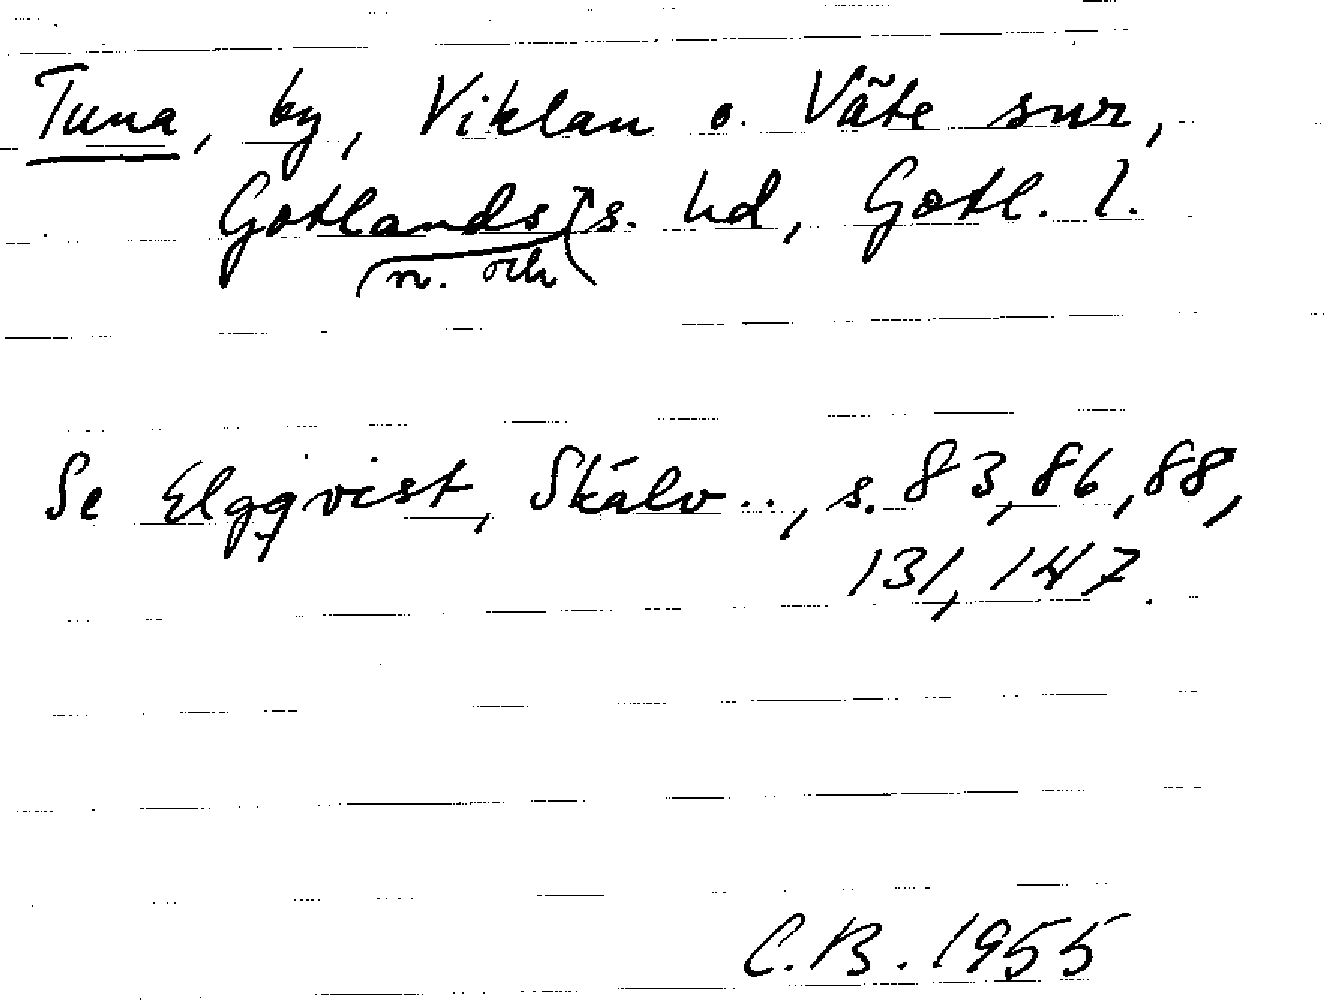 Tuna, by, Viklau o. Väte snr,
Gotlands s. hd, Gotl. l.
n. och
Se Elgqvist, Skälv.., s. 83, 86, 88,
131, 147.
C.B. 1955